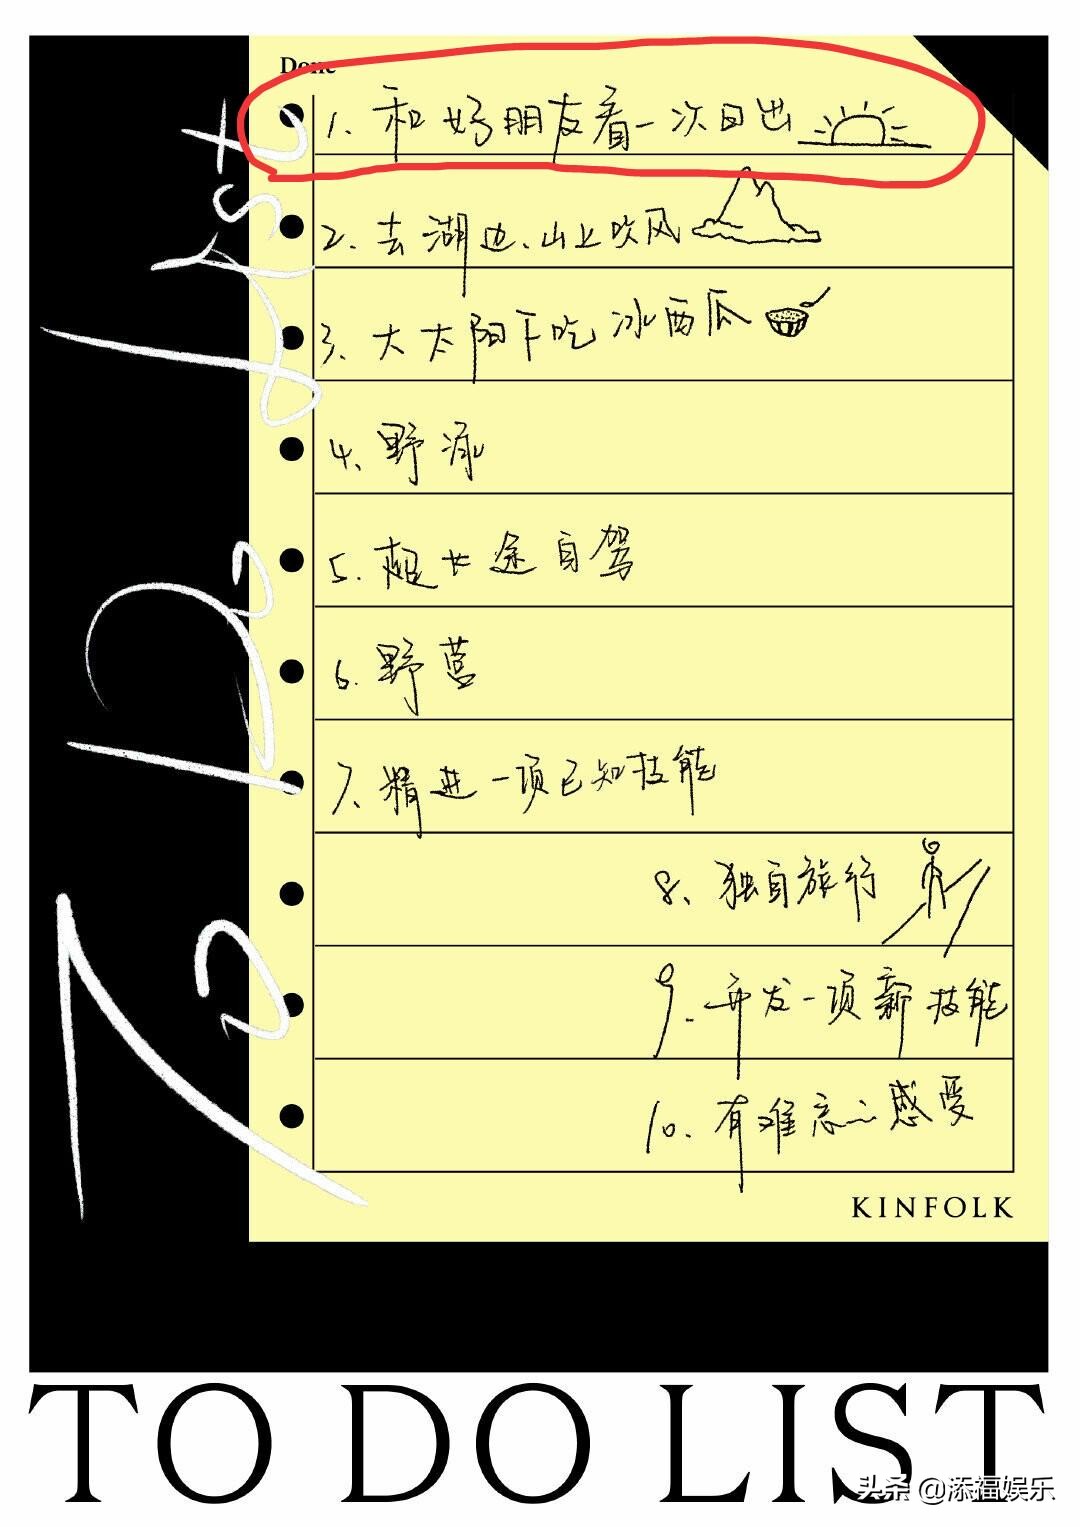 To Do List
Done
1、和好朋友看一次日出
2、去湖边、山上吹风
3、大太阳下吃冰西瓜
4、野泳
5、超长途自驾
6、野营
7、精进一项已知技能
8、独自旅行
9、开发一项新技能
10、有难忘之感受
KINFOLK
TO DO LIST
头条 @添福娱乐